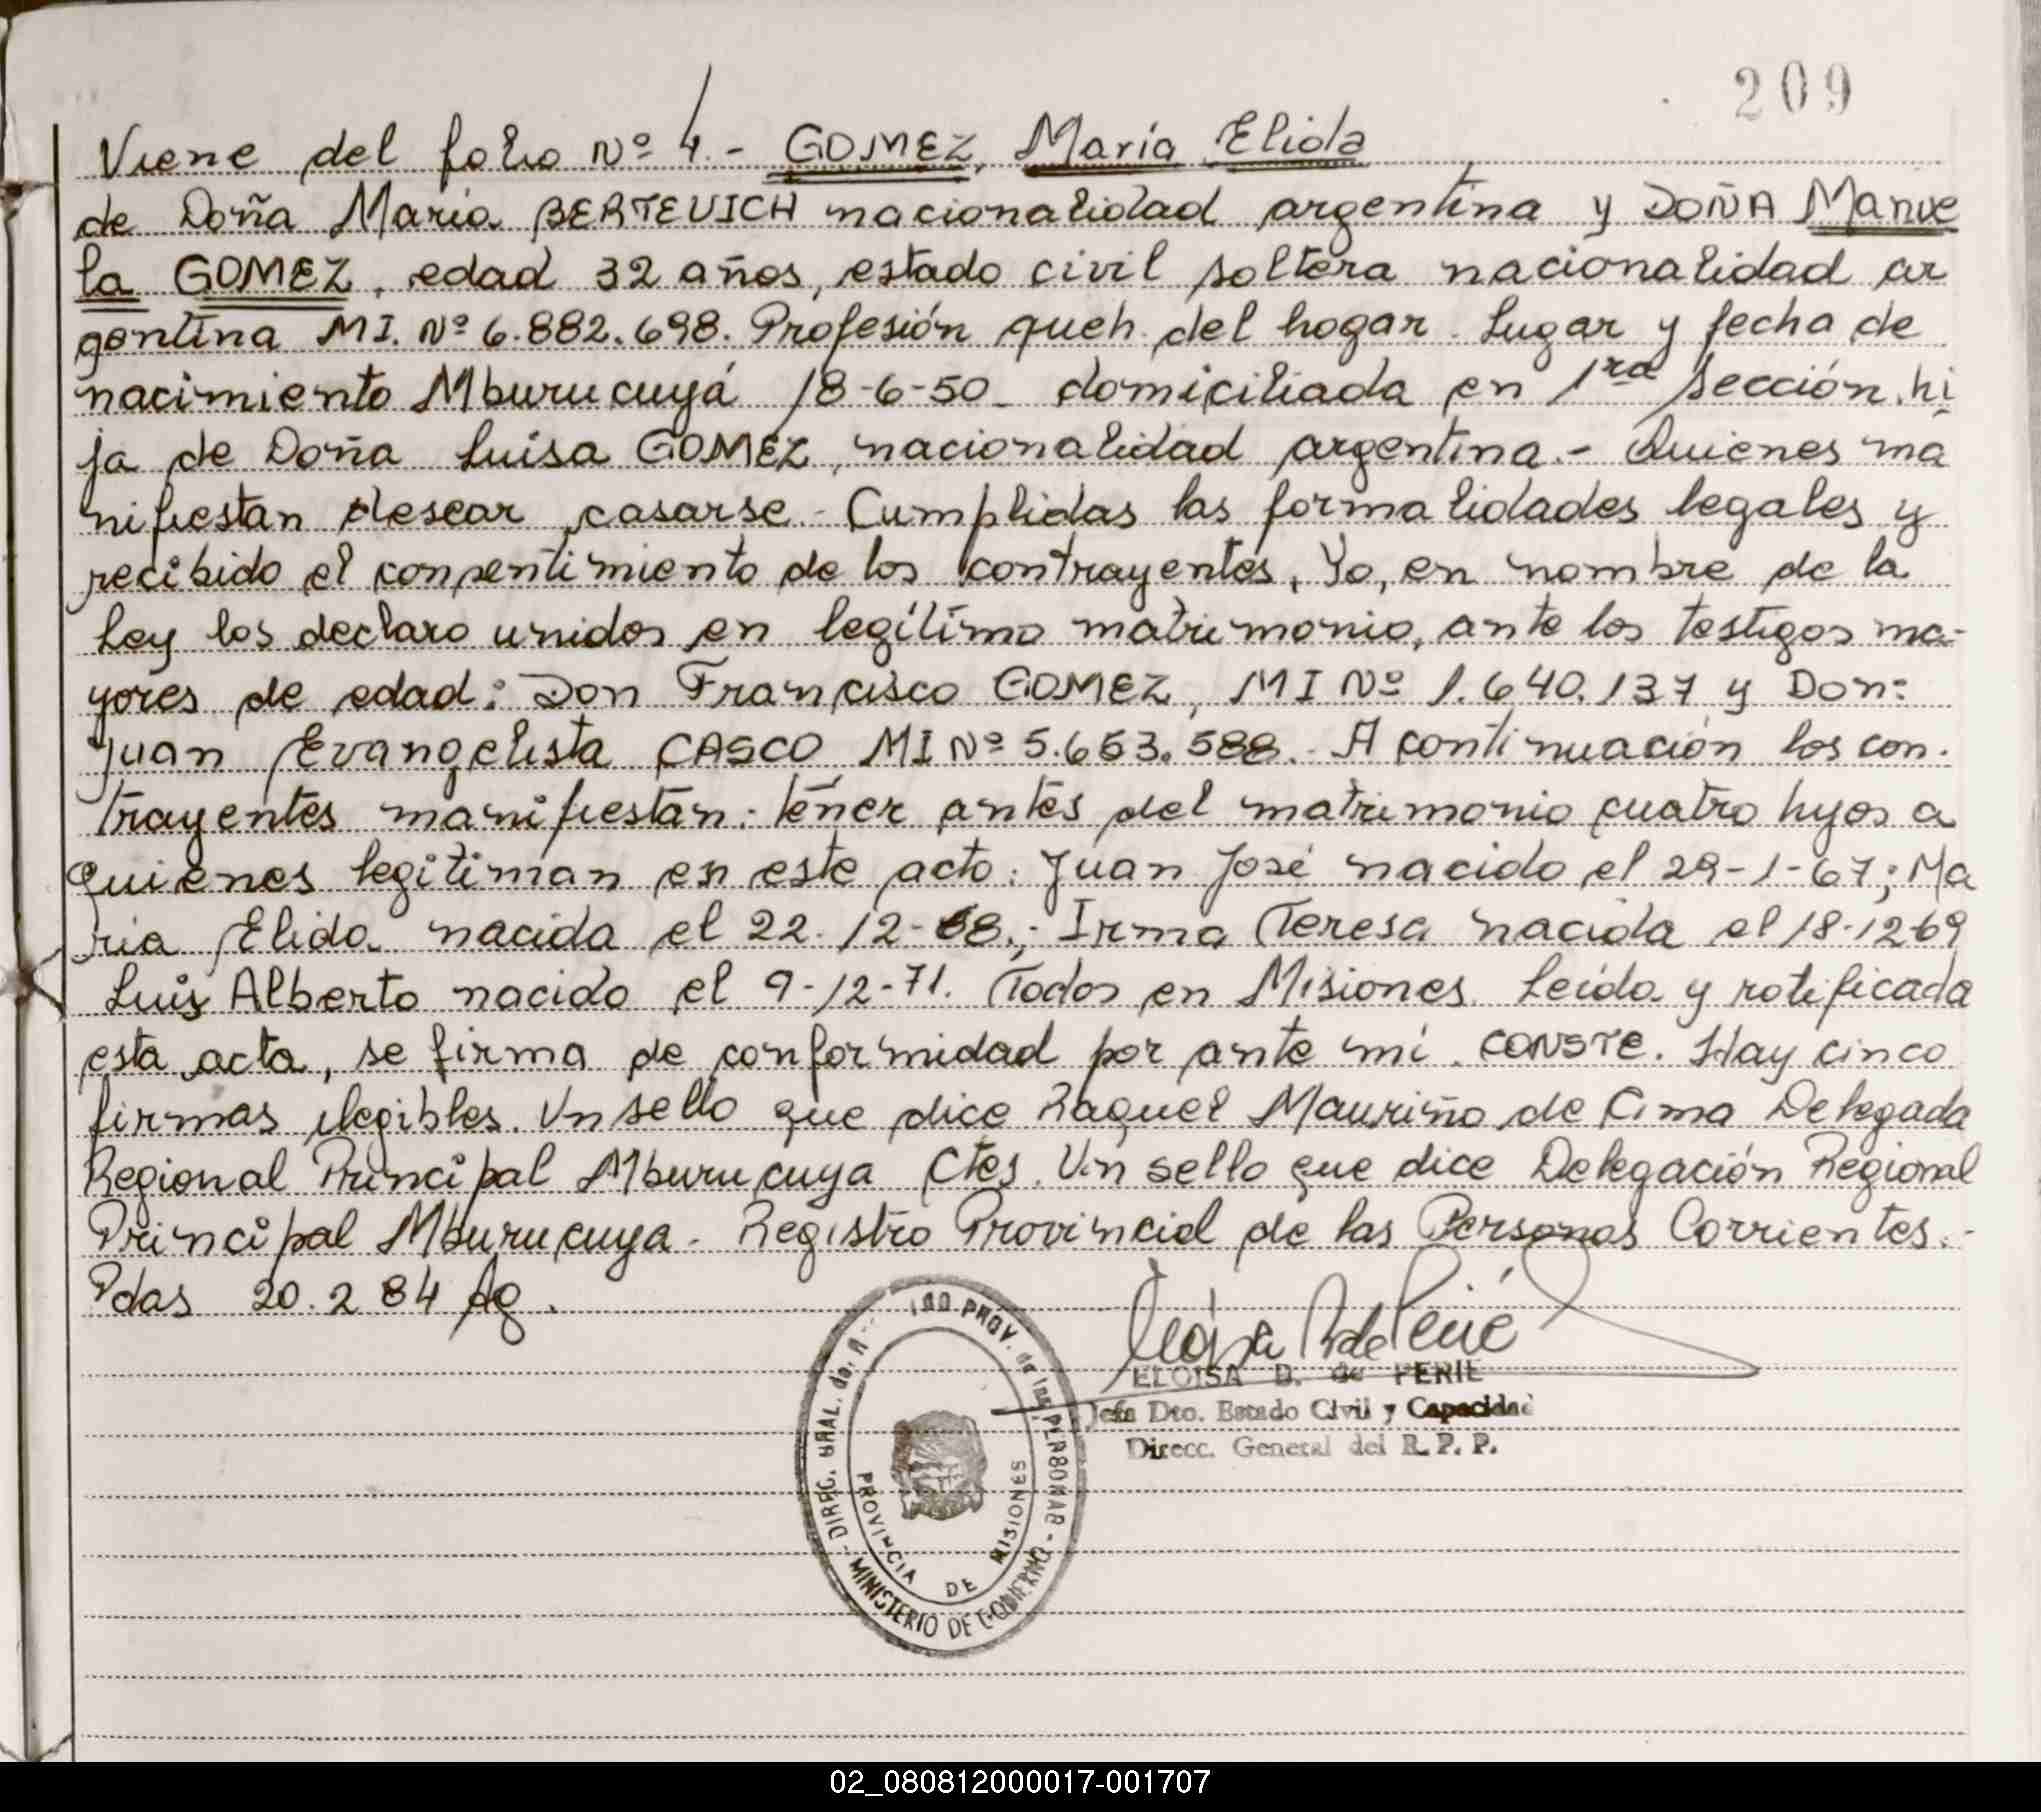 209
Viene del folio Nº 4.- GOMEZ, María Elida
de Doña María BERTEVICH nacionalidad argentina y DOÑA Manue
la GOMEZ, edad 32 años, estado civil soltera nacionalidad ar
gentina MI. Nº 6.882.698. Profesión queh. del hogar. Lugar y fecha de
nacimiento Mburucuyá 18-6-50_ domiciliada en 1ra sección, hi
ja de Doña Luisa GOMEZ, nacionalidad argentina.- Quienes ma
nifiestan desear casarse - Cumplidas las formalidades legales y
recibido el consentimiento de los contrayentes, Yo, en nombre de la
Ley los declaro unidos en legítimo matrimonio, ante los testigos ma-
yores de edad: Don Francisco GOMEZ, MI Nº 1.640.137 y Don:
Juan Evangelista CASCO MI Nº 5.653.588.- A continuación los con-
trayentes manifiestan: tener antes del matrimonio cuatro hijos a
quienes legitiman en este acto: Juan José nacido el 29-1-67; Ma
ria Elida nacida el 22-12-68.; Irma Teresa nacida el 18-12-69
Luis Alberto nacido el 9-12-71. Todos en Misiones. Leída y ratificada
esta acta, se firma de conformidad por ante mí. CONSTE. Hay cinco
firmas ilegibles. Un sello que dice Raquel Mauriño de Cima Delegada
Regional Principal Mburucuya Ctes. Un sello que dice Delegación Regional
Principal Mburucuya - Registro Provincial de las Personas Corrientes.-
Pdas 20.2 84 Ag.
ELOISA D. de PERIE
Jefa Dto. Estado Civil y Capacidad
Direcc. General del R. P. P.
DIREC. GRAL. del PROV. de las PERSONAS - MINISTERIO DE GOBIERNO
PROVINCIA DE MISIONES
02_080812000017-001707